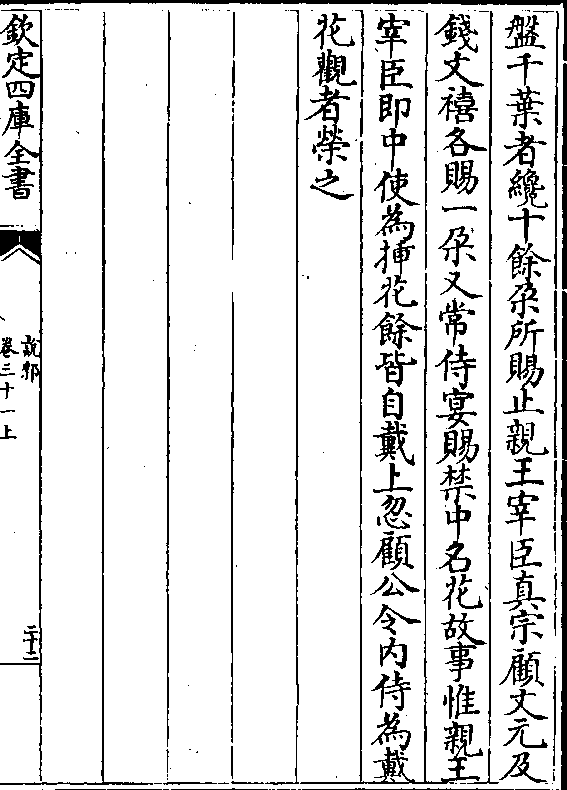 盤千葉者纔十餘朶所賜止親王宰臣真宗顧文元及
錢文禧各賜一朶又常侍宴賜禁中名花故事惟親王
宰臣即中使為揷花餘皆自戴上忽顧公令内侍為戴
花觀者榮之
欽定四庫全書
說郛
卷三十一上
二十二